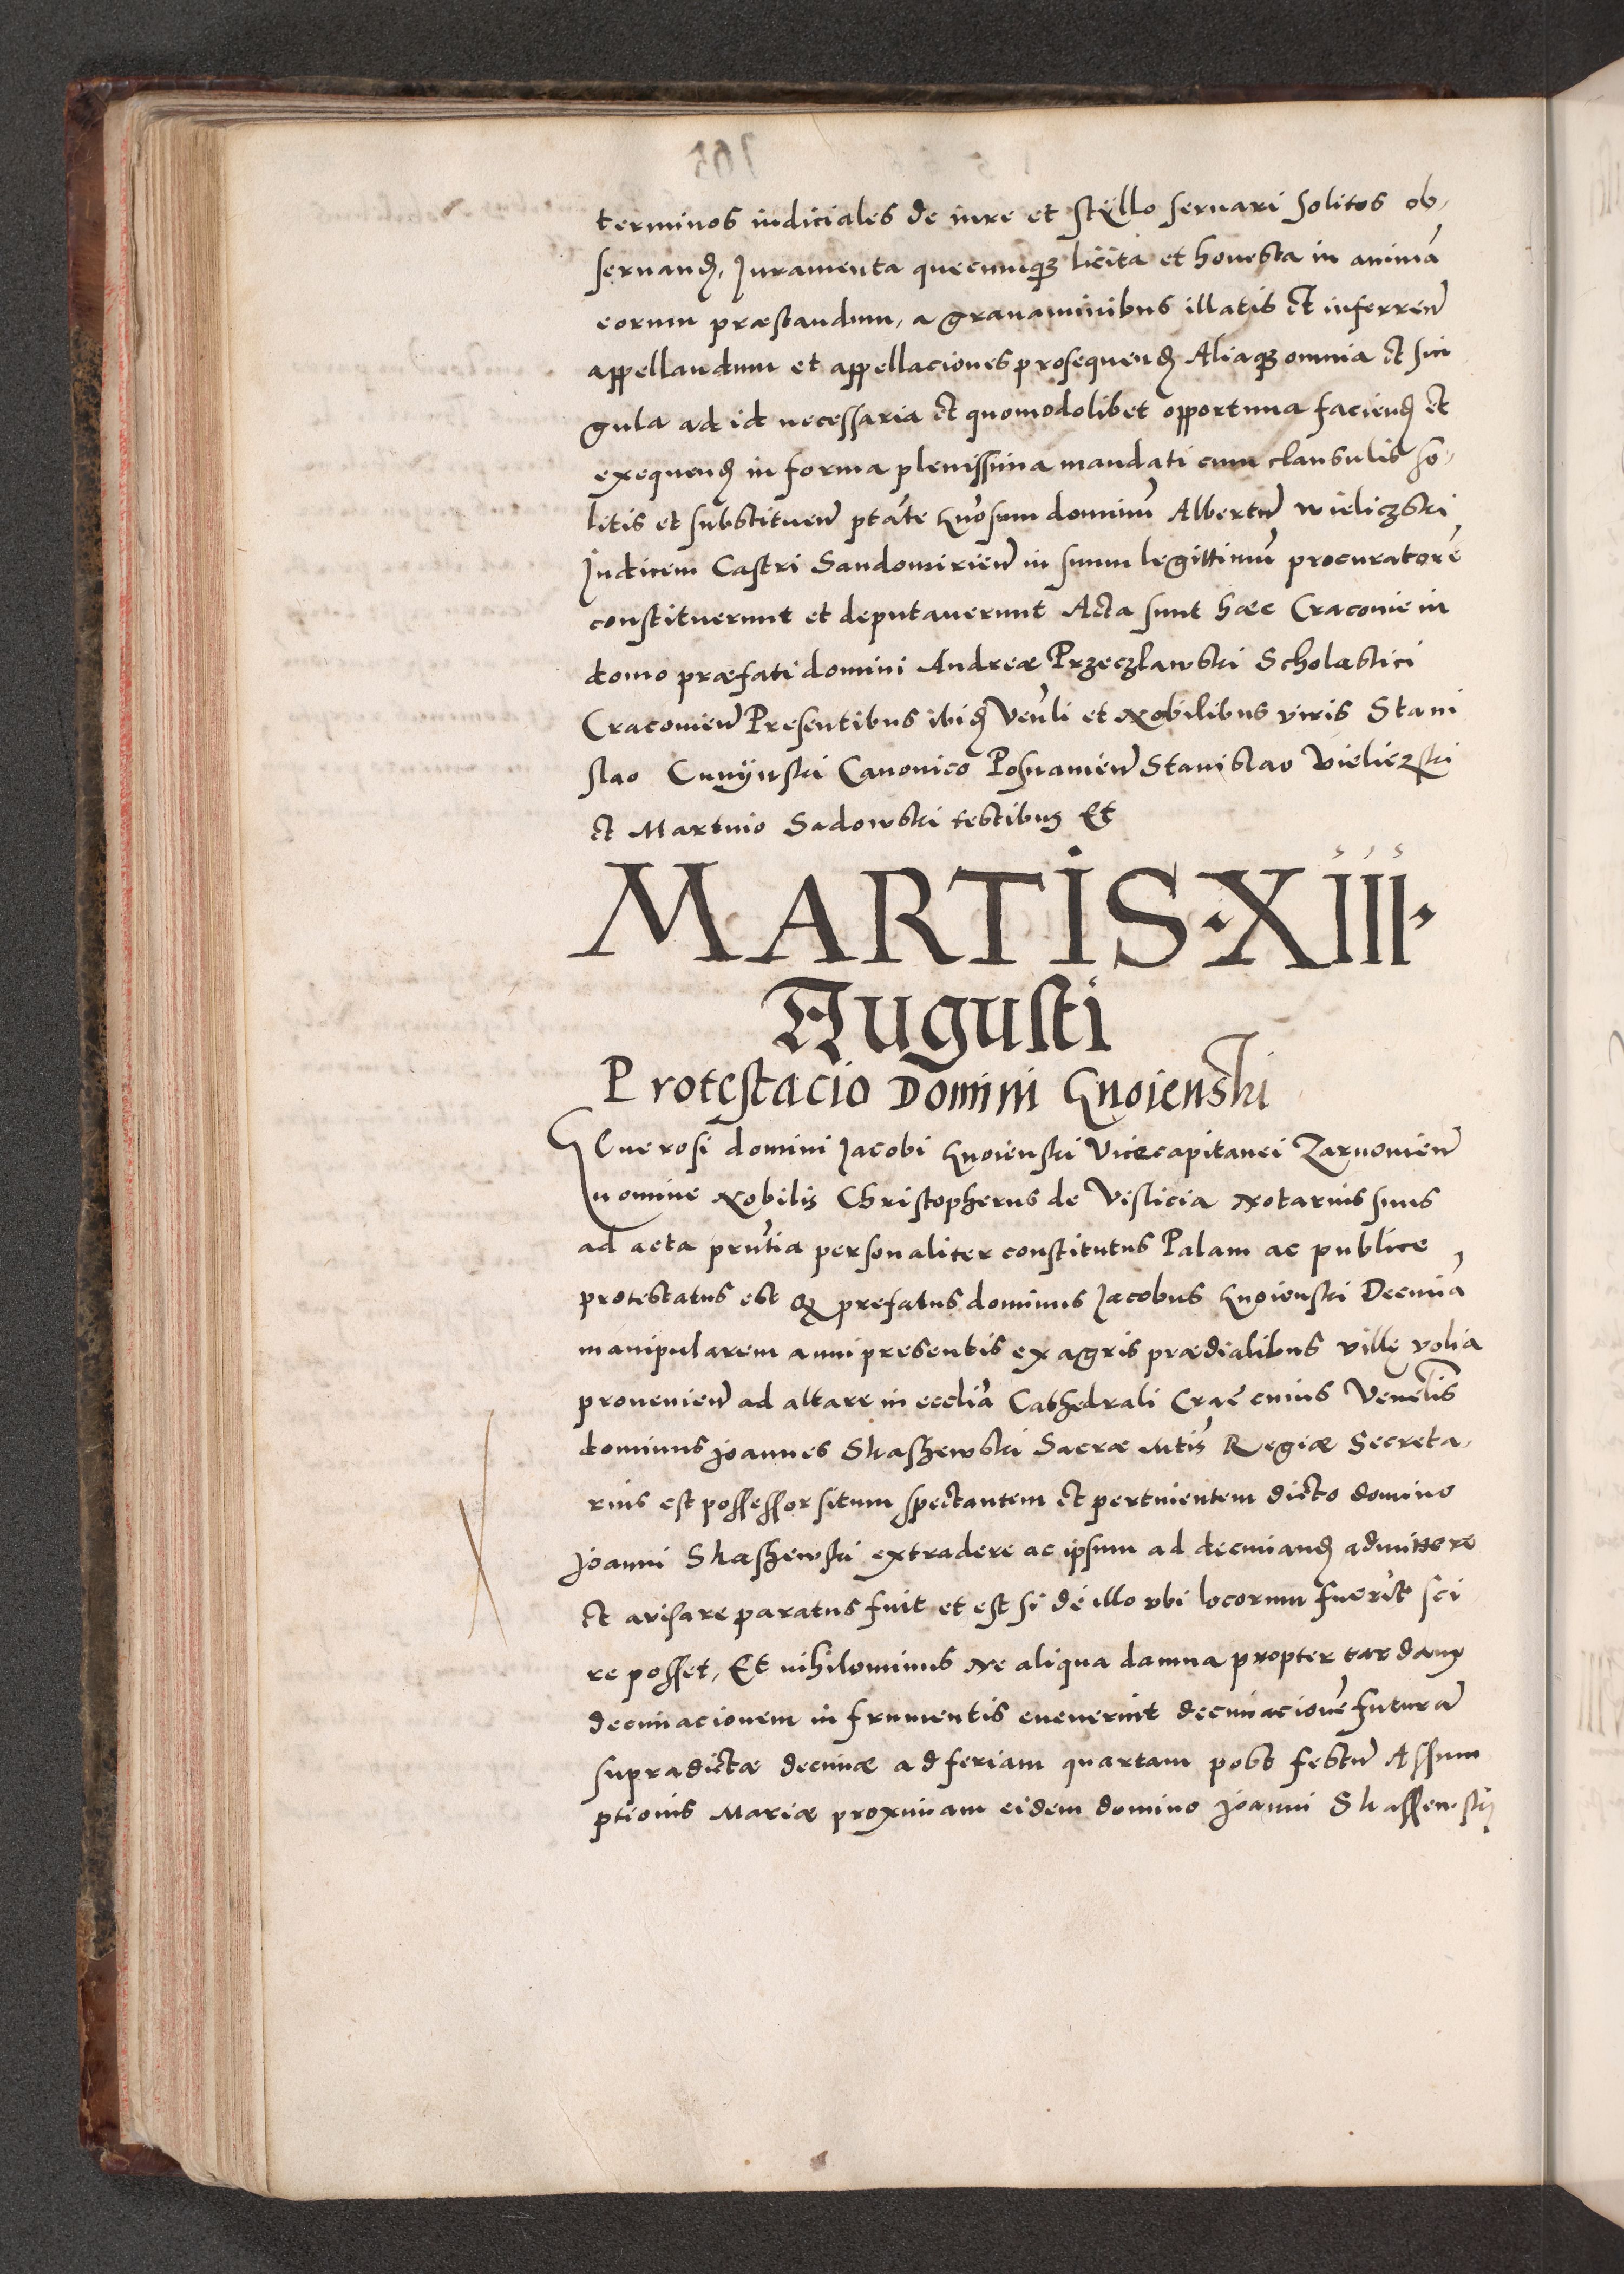 terminos iudiciales de iure et stÿllo seruari solitos ob,
seruanđ, Iuramenta quecunqꝫ licita et honesta in animā
eorum præstandum, a grauaminibus illatis et inferren̄
appellandum et appellaciones prosequenđ Aliaqꝫ omnia et sin
gula ad id necessaria et quomodolibet opportuna faciend̄ et
exequend̄ in forma plenissima mandati cum clausulis so,
litis et substituen̄ ptāte Gn̄osum dominū Albertū Wieliczski
Iudicem Castri Sandomirien̄ in suum legittimū procuratorē
constituerunt et deputauerunt Acta sunt hæc Cracouie in
domo præfati domini Andreæ Przeczlawski Scholastici
Cracouien̄ Presentibus ibid̄ Ven̄li et Nobilibus viris Stani
slao Cunÿnski Canonico Posnanien̄ Stanislao Vieliczski
et Martino Sadowski testibus Et
MARTIS·XIII·
Augusti
Protestacio Domini Gnoienski
Generosi domini Iacobi Gnoienski Vicecapitanei Zarnouien̄
nomine Nobilis Christopherus de Vislicia Notarius suus
ad acta prn̄tia personaliter constitutus Palam ac publice
protestatus est ꝙ prefatus dominus Iacobus Gnoienski Decimā
manipularem anni presentis ex agris prædialibus villę volia
prouenien̄ ad altare in eccliā Cathedrali Crac̄ cuius Venelis̄
dominus Joannes Skaszewski Sacræ Mtis̄ Regiæ Secreta,
rius est possessor situm spectantem et pertinentem dicto domino
Joanni Skaszewski extradere ac ipsum ad decimand̄ admittere
et auisare paratus fuit et est si de illo vbi locorum fuerit sci
re posset, Et nihilominus Ne aliqua damna propter tardam
decimacionem in frumentis euenerint decimacionē futurā
supradictæ decimæ ad feriam quartam post festū Assum
ptionis Mariæ proximam eidem domino Joanni Skassewski